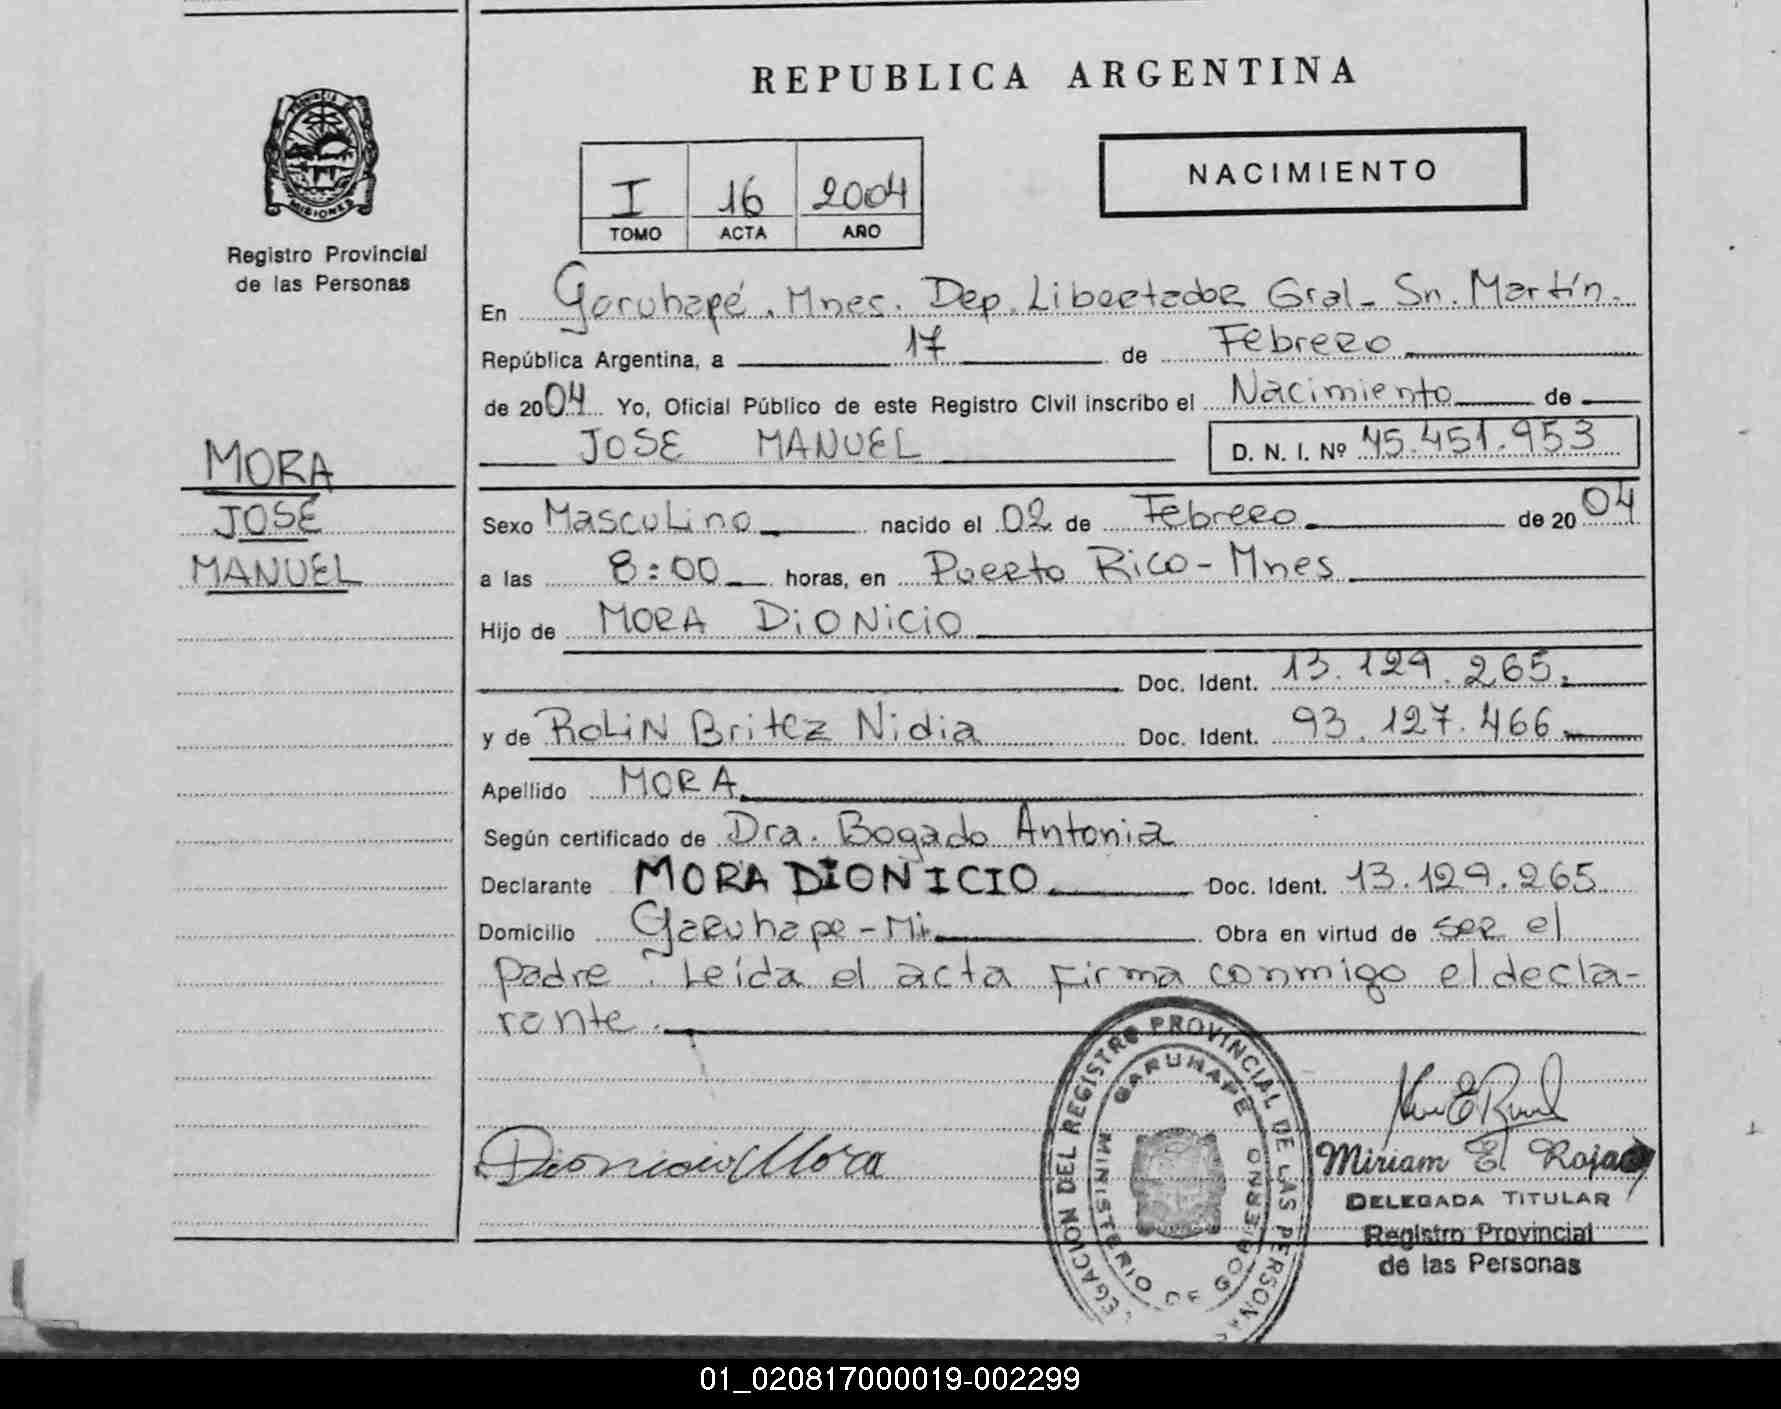 REPUBLICA ARGENTINA
PROVINCIA DE
MISIONES
Registro Provincial
de las Personas
NACIMIENTO
I 16 2004
TOMO ACTA AÑO
En Garuhapé. Mnes. Dep. Libertador Gral. Sn. Martín.
República Argentina, a 17 de Febrero
de 2004 Yo, Oficial Público de este Registro Civil inscribo el Nacimiento de
JOSE MANUEL D. N. I. Nº 45.451.953
MORA
JOSÉ
MANUEL
Sexo Masculino nacido el 02 de Febrero de 2004
a las 8:00 horas, en Puerto Rico - Mnes
Hijo de MORA DiONicio
Doc. Ident. 13.129.265.
y de ROLiN Britez Nidia Doc. Ident. 93.127.466
Apellido MORA
Según certificado de Dra. Bogado Antonia
Declarante MORA DIONICIO Doc. Ident. 13.129.265
Domicilio Garuhape - Mi Obra en virtud de ser el
padre. Leída el acta firma conmigo el decla-
rante.
Dionicio Mora
EGACION DEL REGISTRO PROVINCIAL DE LAS PERSONAS
GARUHAPE
MINISTERIO DE GOBIERNO
Miriam E. Rojas
DELEGADA TITULAR
Registro Provincial
de las Personas
01_020817000019-002299